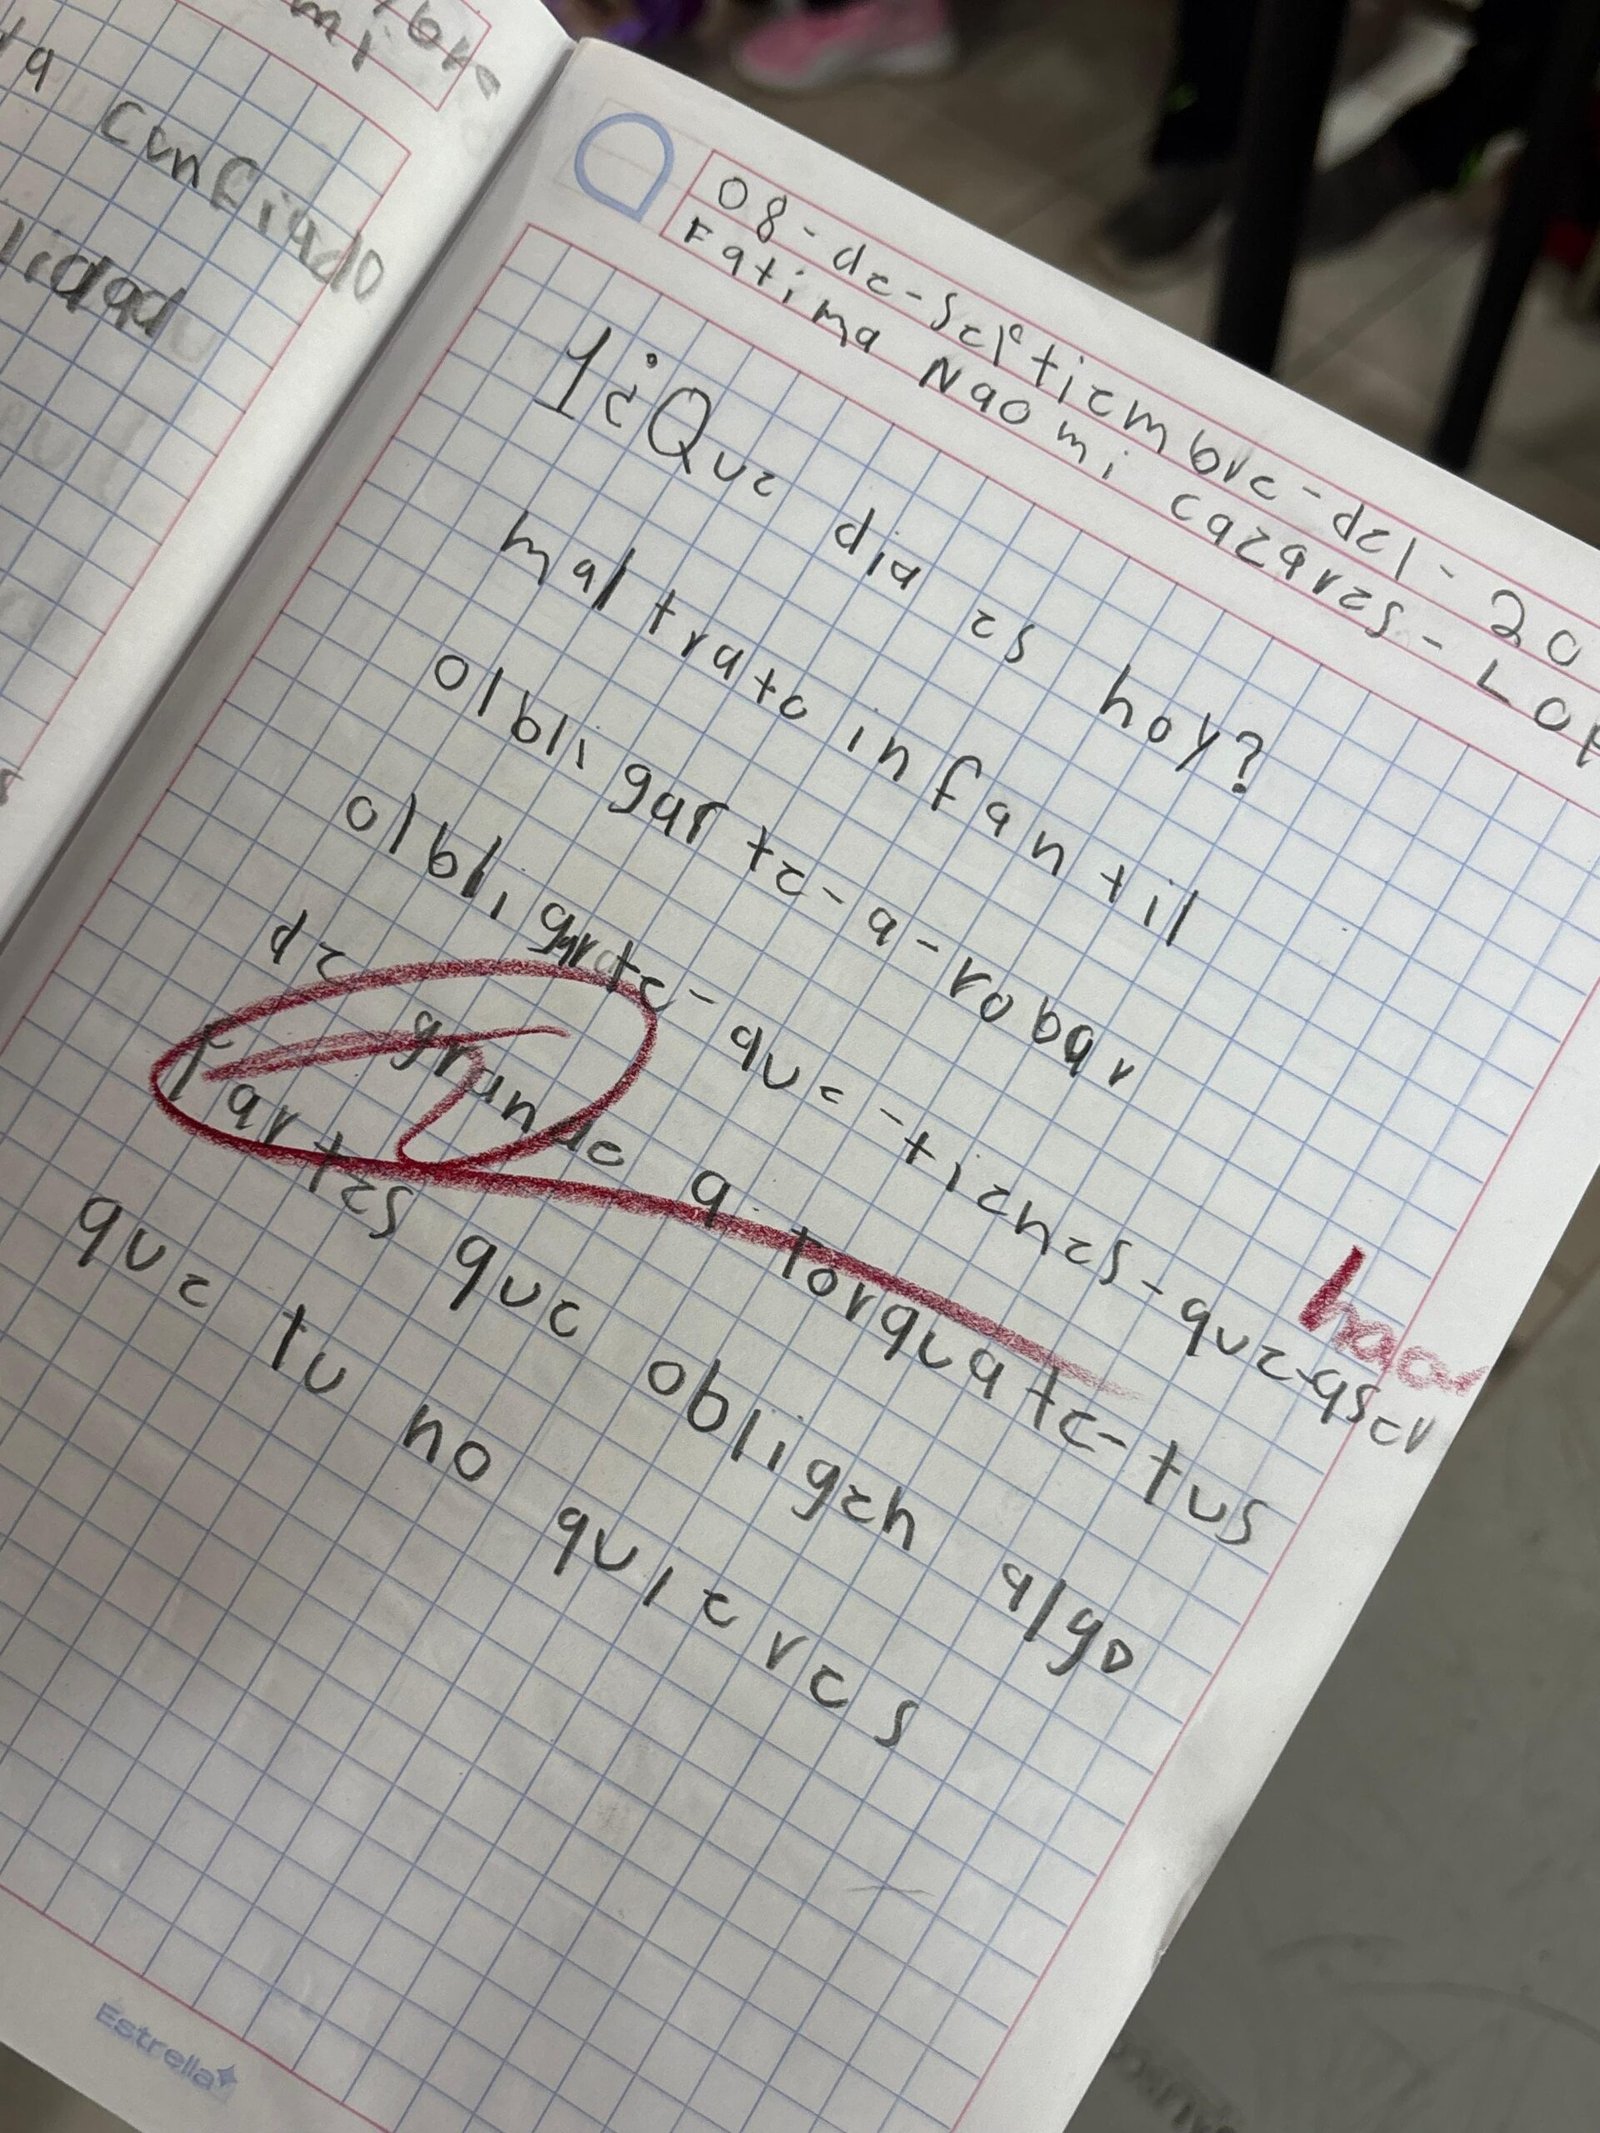 confiado
lidad
08-de-septiembre-del-20
Fatima Naomi Cazares-Lop
1¿Que dia es hoy?
maltrato infantil
olbligarte-a-robar
olbligarte-que-tienes-que-aser
hacer
de grande a torquate-tus
Partes que obligen algo
que tu no quieres
Estrella